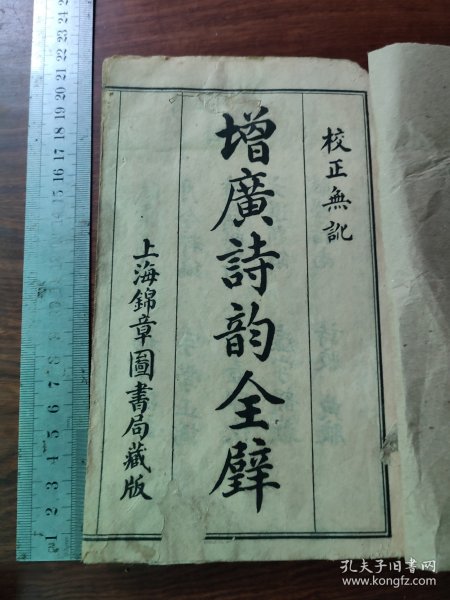 校正無訛
增廣詩韵全璧
上海錦章圖書局藏版
24
23 22 21 20 19 18 17 16 15 14 13 12 11 10 9 8 7 6 5 4 3 2 1
孔夫子旧书网
www.kongfz.com